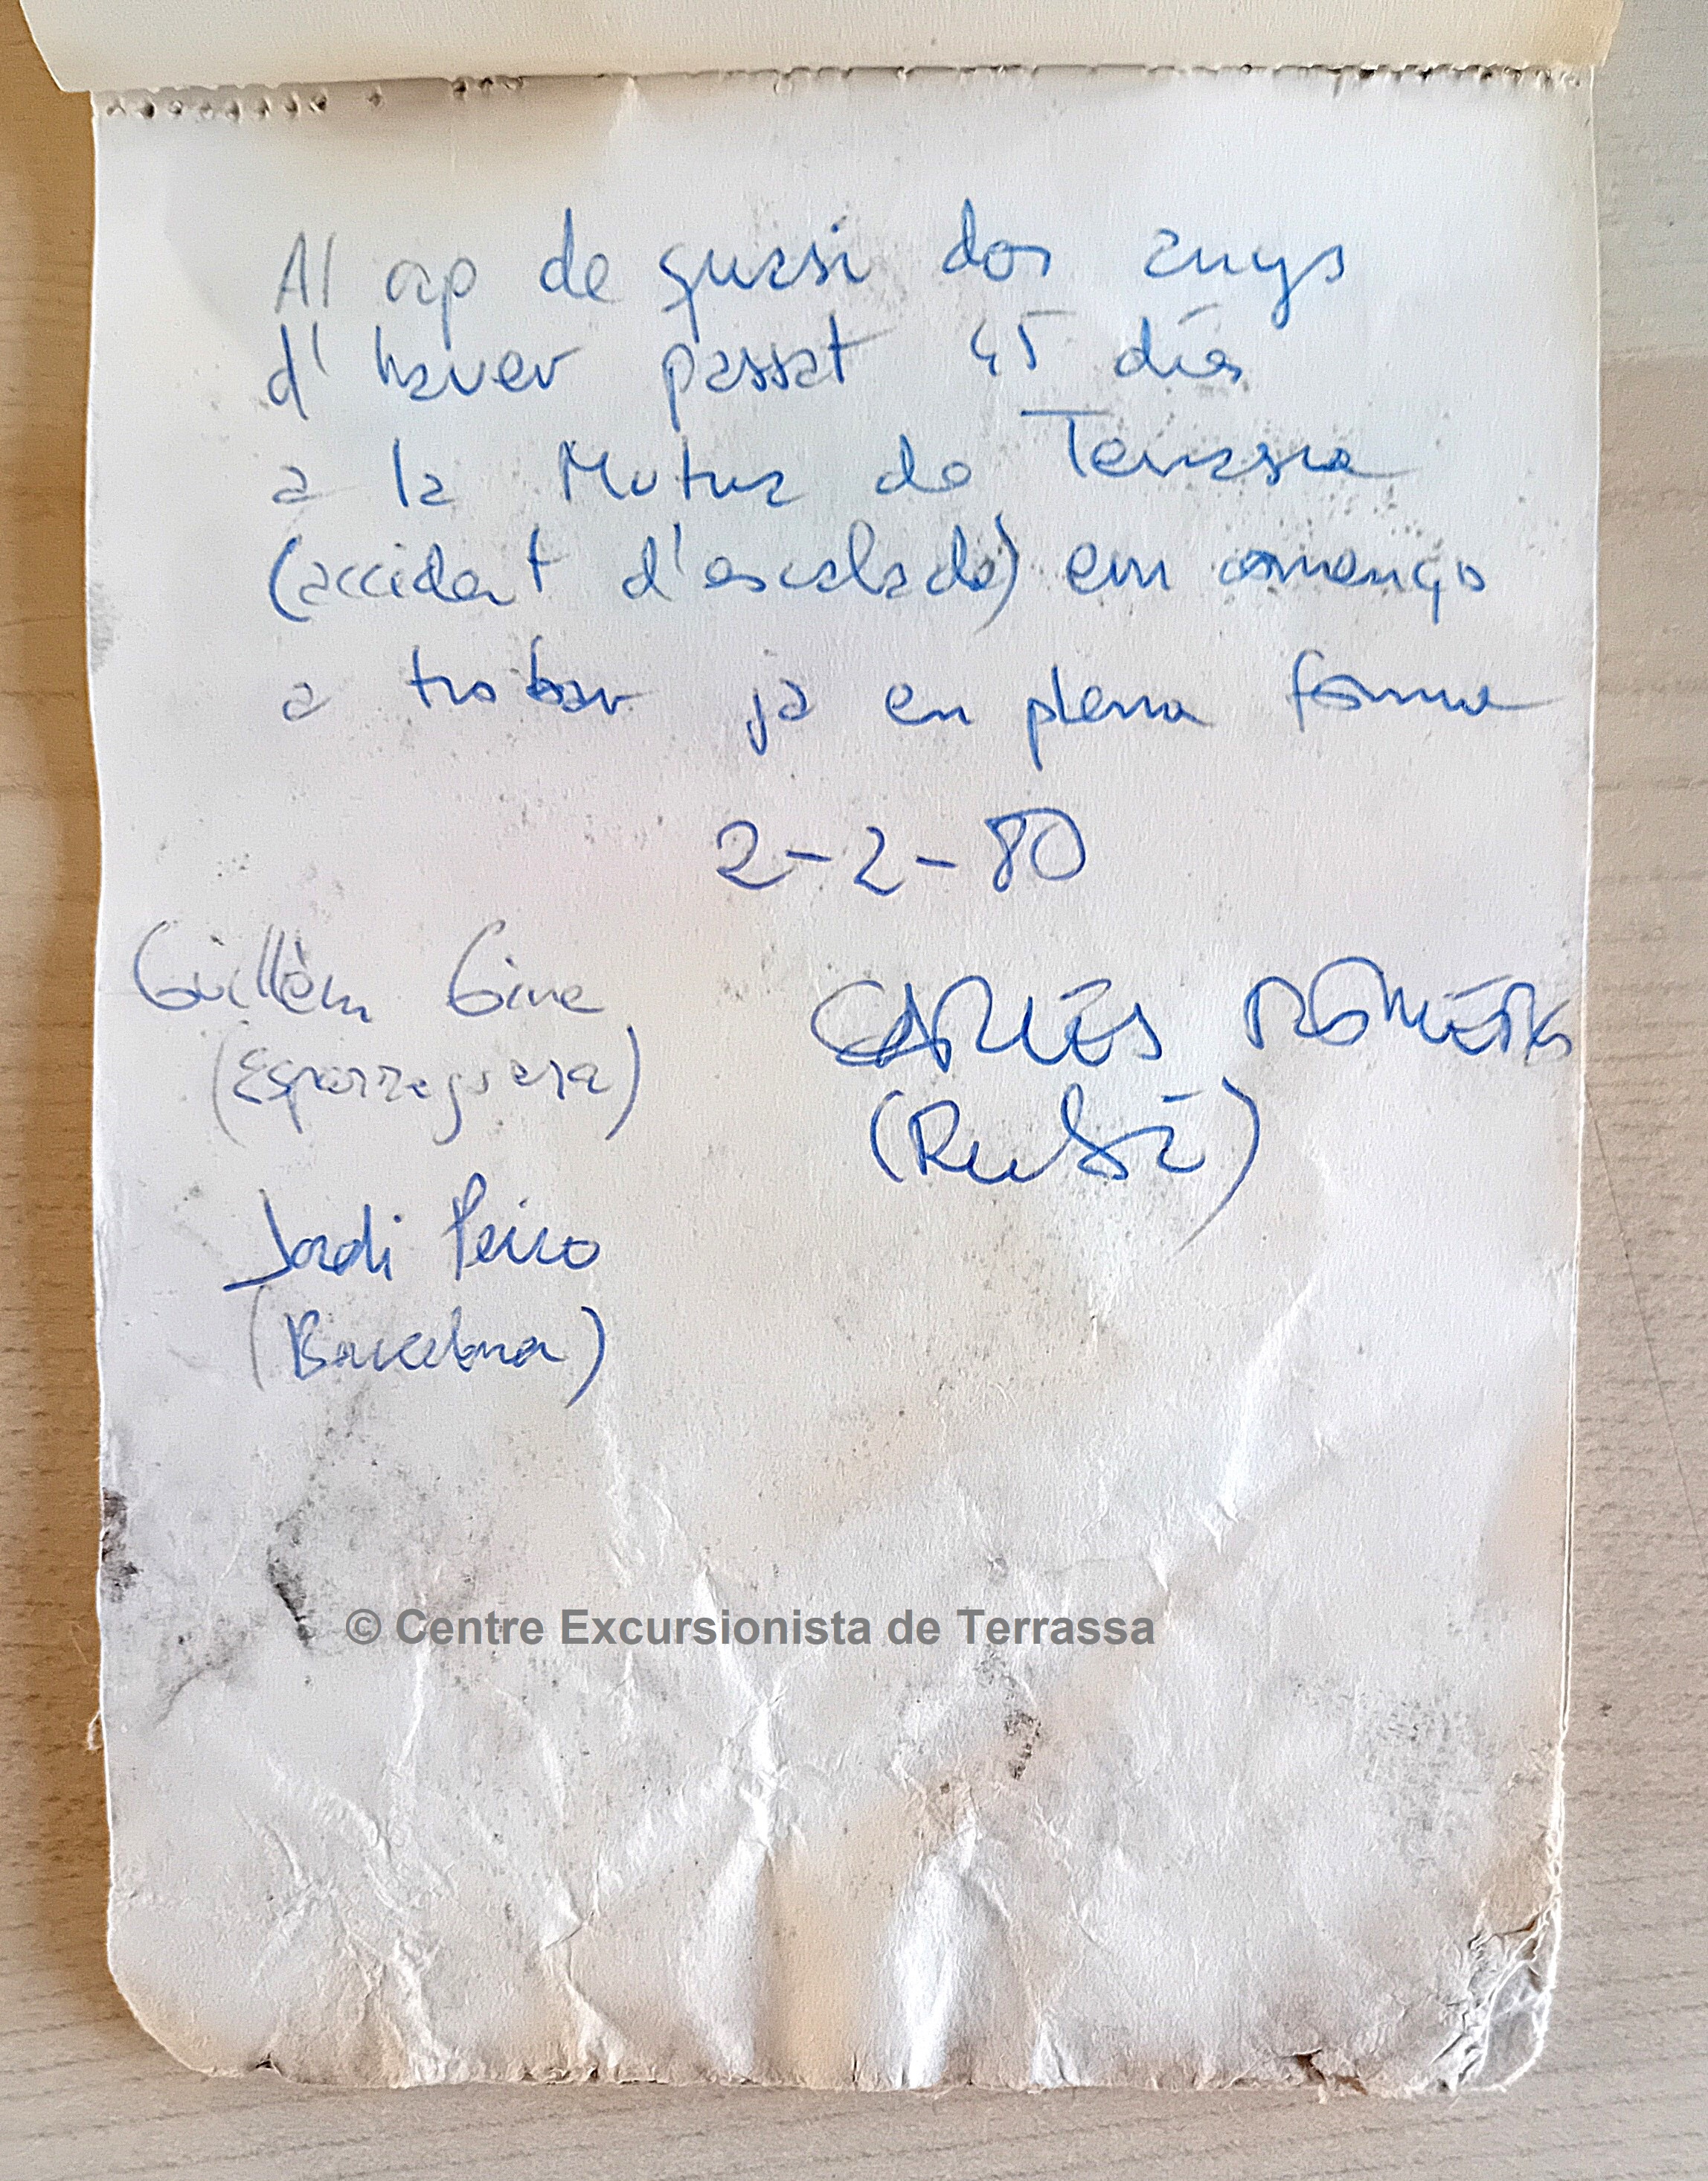 Al cap de quasi dos anys
d'haver passat 45 dies
a la Mutua de Terrassa
(accident d'escalada) em començo
a trobar ja en plena forma
2-2-80
Guillèm Gine
(Esparreguera)
CARLES ROMERO
(Rubí)
Jordi Peiro
(Barcelona)
© Centre Excursionista de Terrassa